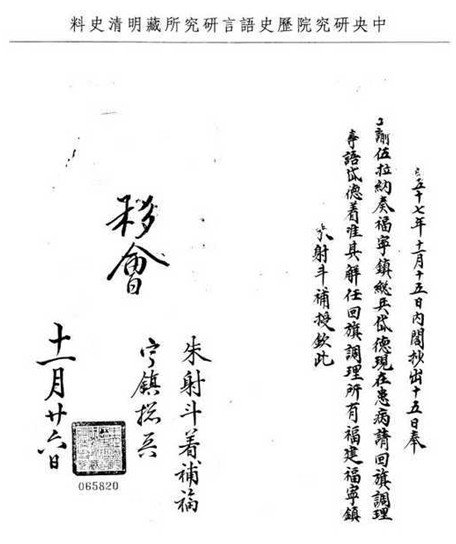 中央研究院歷史語言研究所藏明清史料
五十七年十一月十五日內閣抄出十五日奉
諭伍拉納奏福寧鎮総兵岱德現在患病請回旗調理
等語岱德着准其解任回旗調理所有福建福寧鎮
朱射斗補授欽此
朱射斗着補福
宁鎮捴兵
移會
十一月廿六日
065820